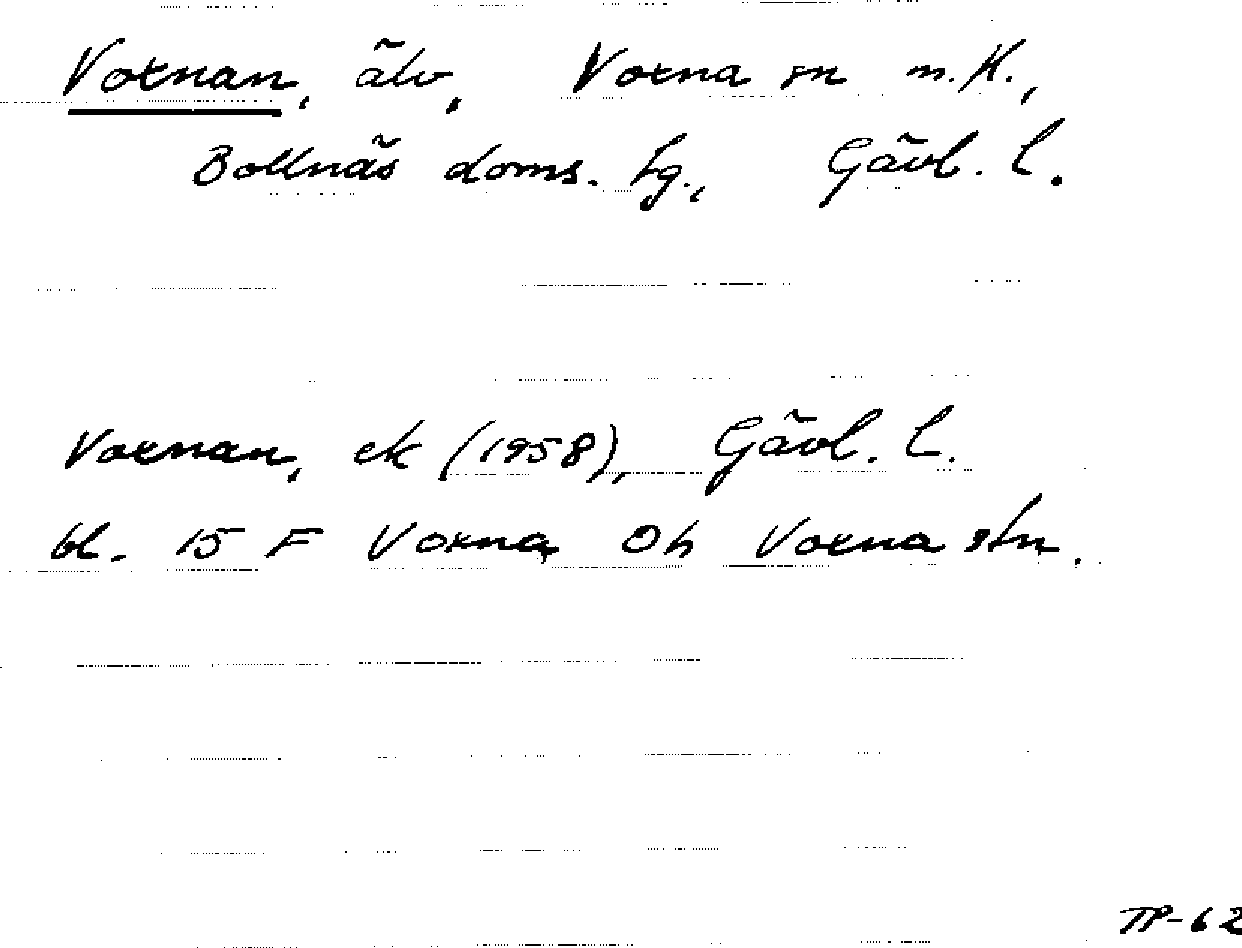 Voxnan, älv, Voxna sn m.fl.,
Bollnäs doms. lg., Gävl. l.
Voxnan, ek (1958), Gävl. l.
bl. 15 F Voxna 0h Voxna stn.
TP-62